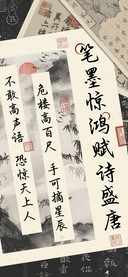 笔墨惊鸿赋诗盛唐
危楼高百尺 手可摘星辰
不敢高声语 恐惊天上人